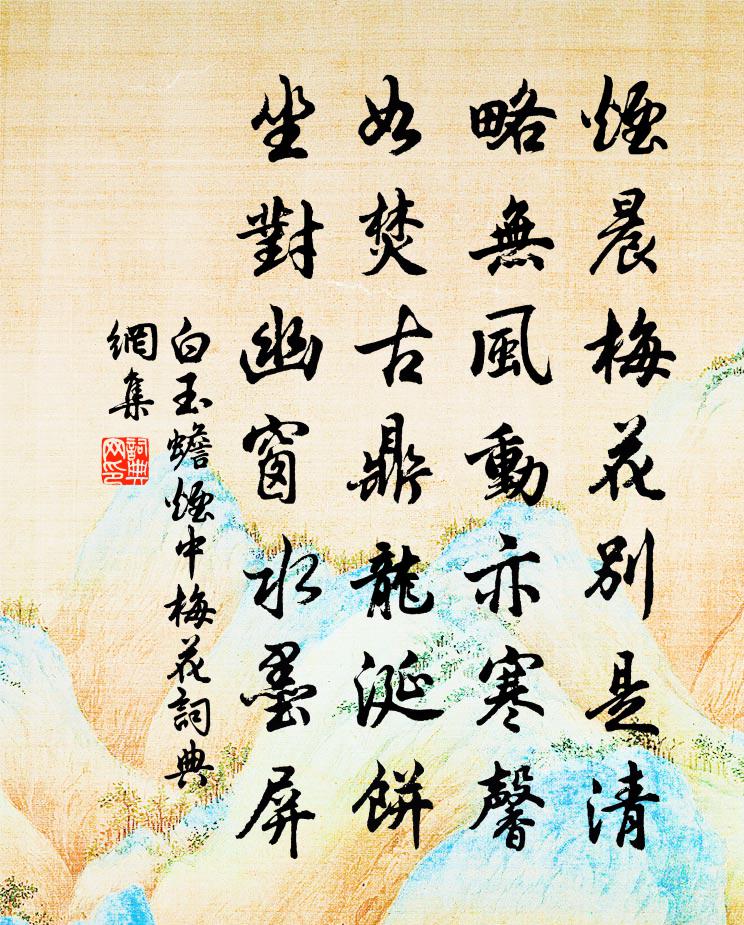 煙晨梅花別是清
略無風動亦寒馨
如焚古鼎龍涎餅
坐對幽窗水墨屏
白玉蟾煙中梅花詞典
網集
詞典
网印